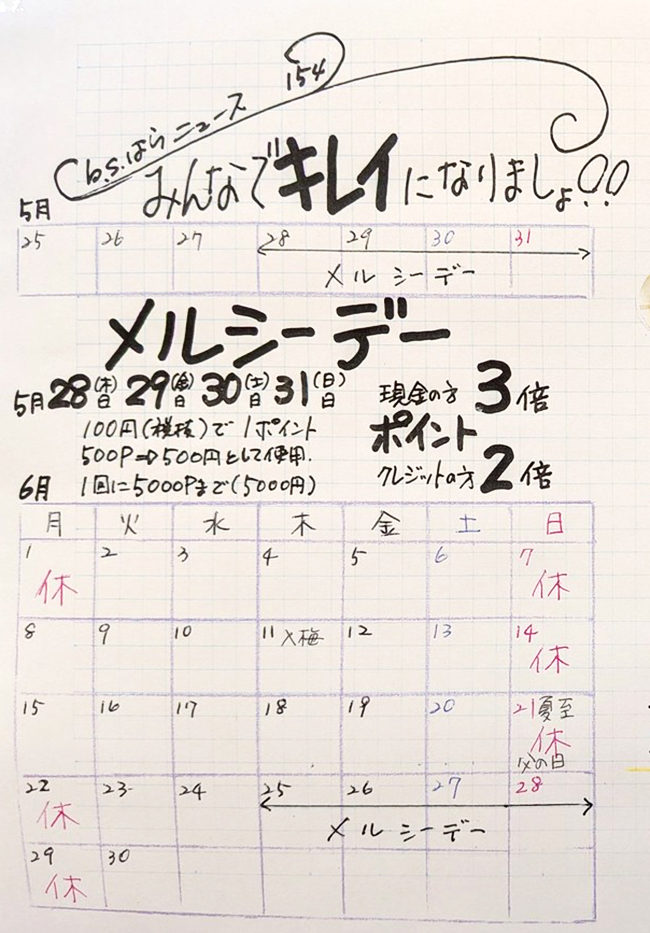 154
b.s.はらニュース
みんなでキレイになりましょ!!
5月
25 26 27 28 29 30 31
メルシーデー
メルシーデー
5月28(木)日 29(金)日 30(土)日 31(日)日
現金の方 3倍
100円(税抜)で1ポイント
ポイント
500P⇒500円として使用.
クレジットの方 2倍
1回に5000Pまで(5000円)
6月
月 火 水 木 金 土 日
1 2 3 4 5 6 7
休 休
8 9 10 11 入梅 12 13 14
休
15 16 17 18 19 20 21 夏至
休
父の日
22 23 24 25 26 27 28
休 メルシーデー
29 30
休